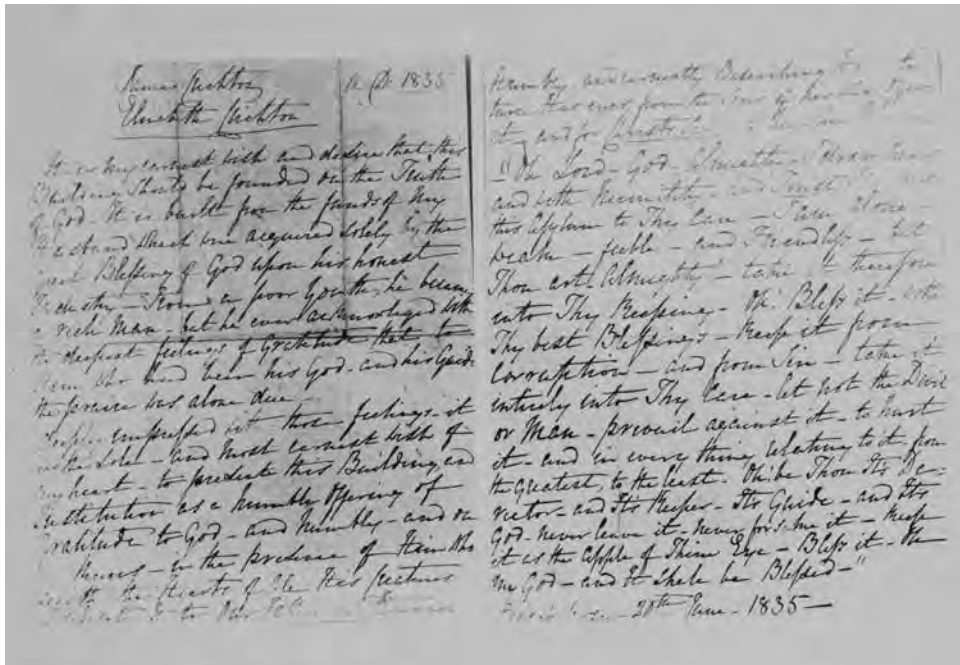 Crichton A. D. 1835
Elizabeth Crichton
It is my earnest wish and desire that this
Building should be founded on the Truth
of God. It is built from the funds of My
Husband which were acquired solely by the
great Blefsing of God upon his honest
Industry – From a poor Youth, he became
a rich Man – but he ever acknowledged with
the deepest feelings of Gratitude that to
Him who had been his God – and his Guide
the praise was alone due –
impressed with those feelings – it
is the Sole – and most earnest wish of
my heart – to present this Building, and
Institution as a humble Offering of
Gratitude to God – and Humbly – and on
in the presence of Him Who
the Hearts of all His Creatures
to
humbly and earnestly Beseeching to
turn ever from the
and for
"Oh Lord – God – Almighty – I draw near
and with Humility and
this Asylum to Thy Care – I am alone –
weak – feeble – and Friendlefs – but
Thou art Almighty – take it therefore
into Thy Keeping – Oh! Blefs it – with
Thy best Blefsings – Keep it from
Corruption – and from Sin – take it
entirely into Thy Care – let not the Devil
or Man – prevail against it – to hurt
it – and in every thing relating to it from
the greatest, to the least. Oh! be Thou Its Di-
rector – and Its Keeper – Its Guide – and Its
God – never leave it – never forsake it – Keep
it as the apple of Thine Eye – Blefs it – Oh
my God – and It Shall be Blefsed –"
20th June – 1835 –